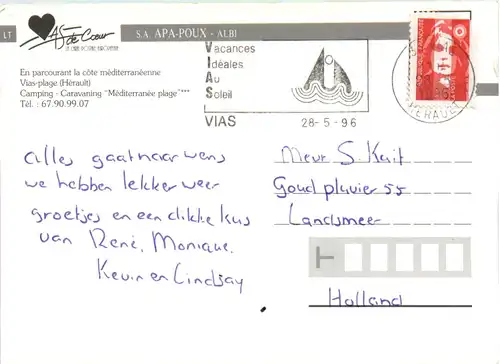 LT
As de Cœur
LA CARTE POSTALE EUROPÉENNE
S.A. APA-POUX - ALBI
En parcourant la côte méditerranéenne
Vias-plage (Hérault)
Camping - Caravaning "Méditerranée plage"***
Tél. : 67.90.99.07
VIAS
Vacances
Idéales
Au
Soleil
VIAS
28-5-96
HERAULT
alles gaat naar wens
we hebben lekker weer
groetjes en een dikke kus
van René, Monique,
Kevin en Lindsay
Meur S. Kuit
Goudpluvier 55
Landsmeer
Holland